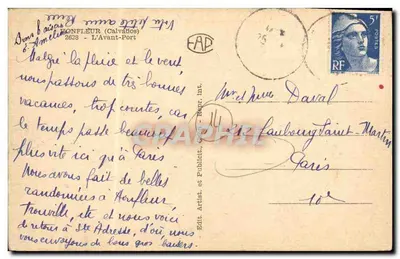 HONFLEUR (Calvados)
2628 - L'Avant-Port
Malgré la pluie et le vent
nous passons de très bonnes
vacances, trop courtes, car
le temps passe beaucoup
plus vite ici qu'à Paris
Nous avons fait de belles
randonnées à Honfleur,
Trouville, etc et nous voici
de retour à Ste Adresse, d'où nous
vous envoyons de bons gros baisers.
Bons baisers
EAP
Edit. Artist. et Publicit.
Mr et Mme Daval
Faubourg Saint-Martin
Paris
10e
14
5F
POSTES
RF